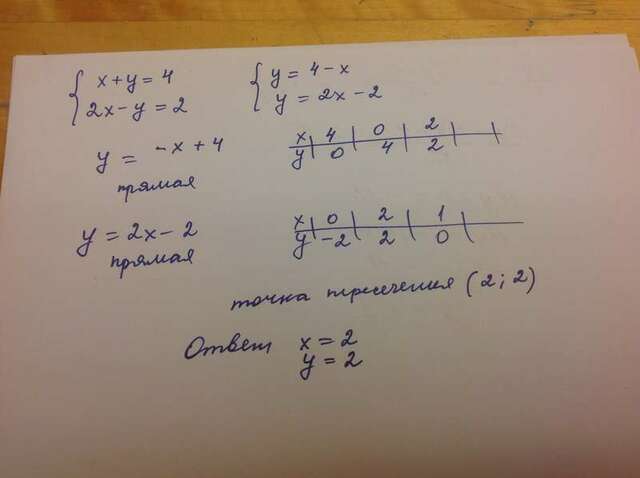 { x + y = 4
2x - y = 2
{ y = 4 - x
y = 2x - 2
y = -x + 4
прямая
x | 4 | 0 | 2
y | 0 | 4 | 2
y = 2x - 2
прямая
x | 0 | 2 | 1
y | -2 | 2 | 0
точка пересечения (2; 2)
Ответ x = 2
y = 2